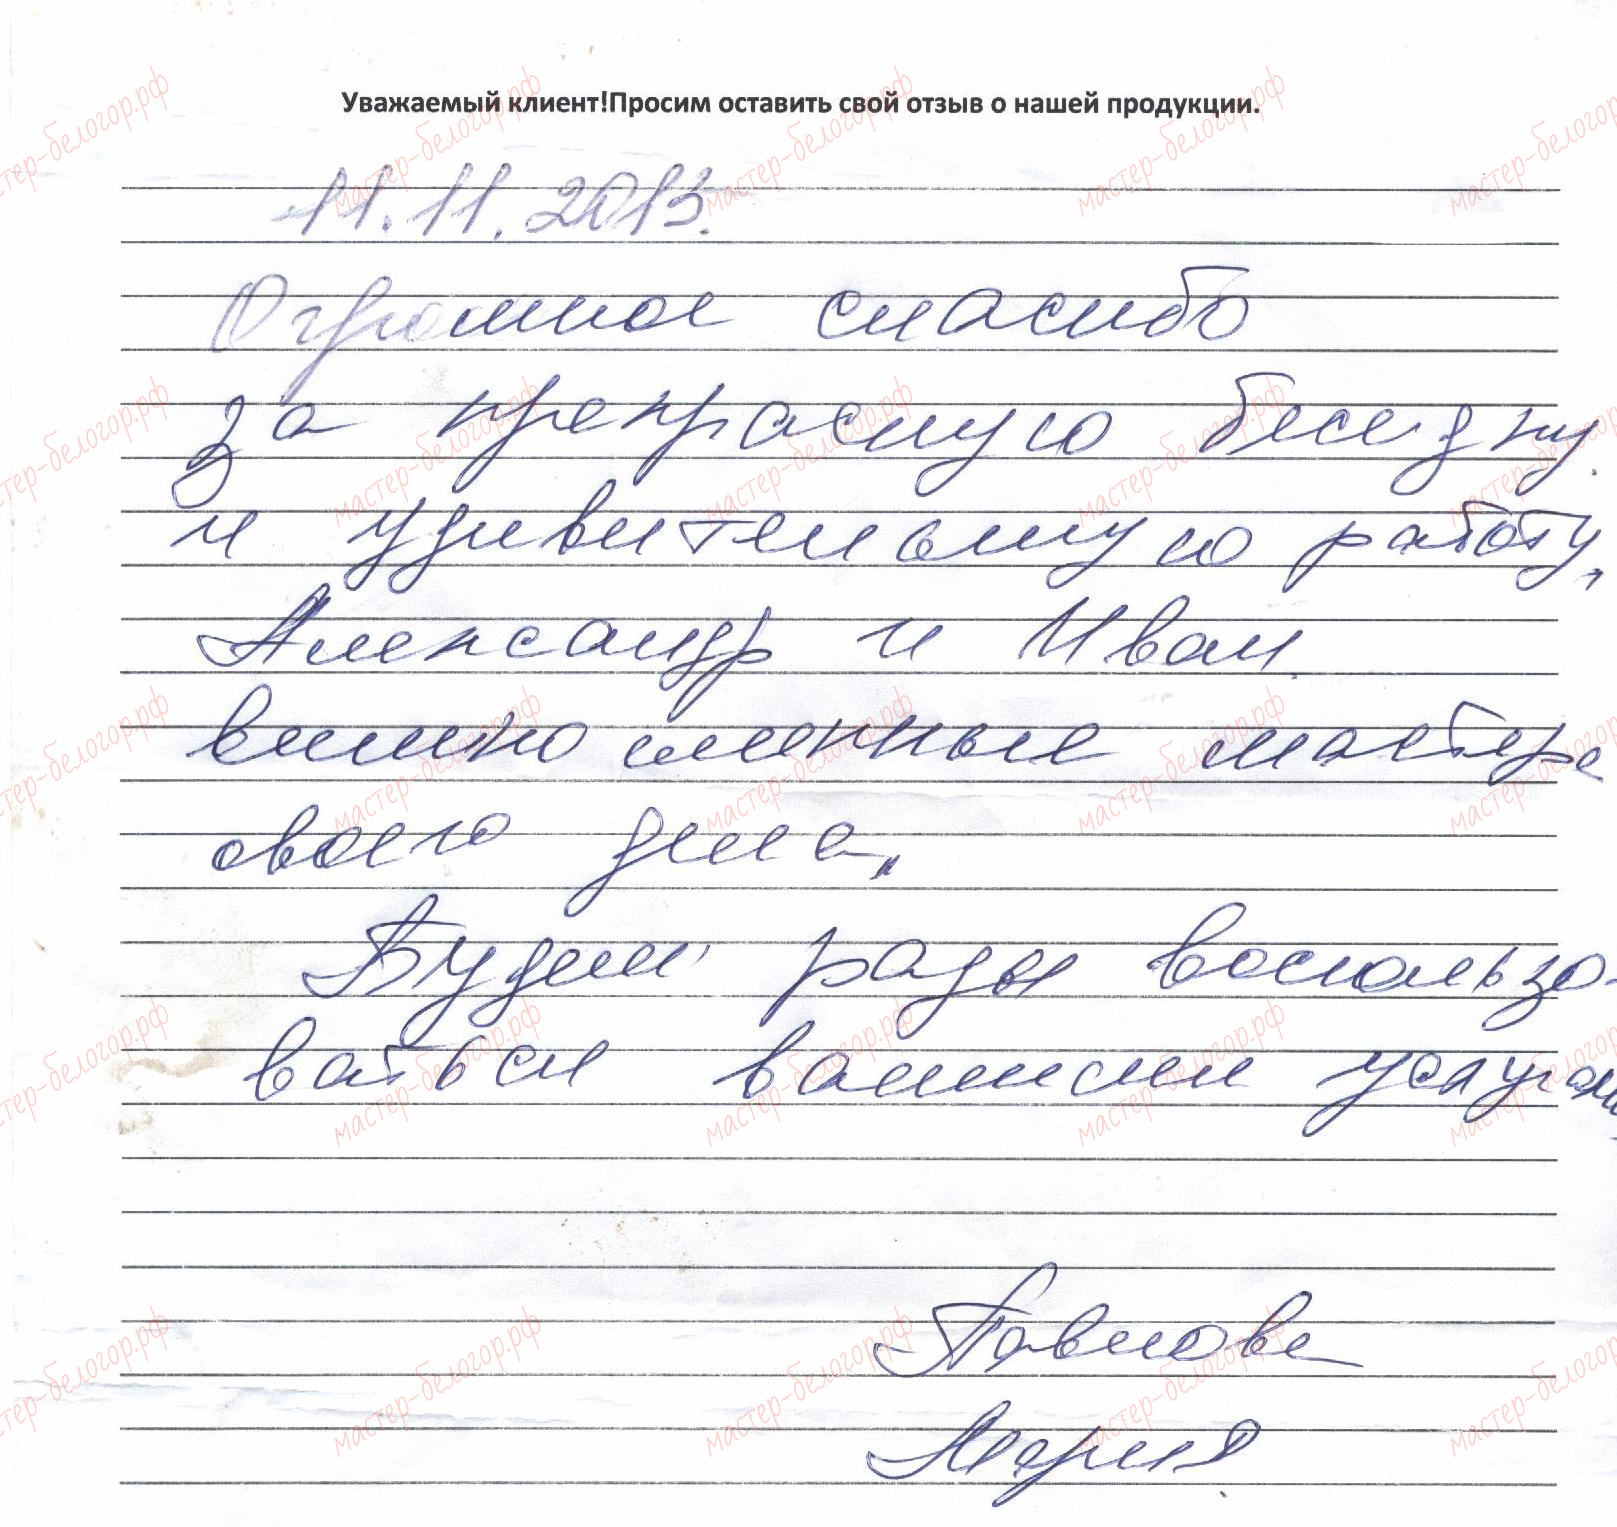 Уважаемый клиент!Просим оставить свой отзыв о нашей продукции.
11.11.2013.
Огромное спасибо
за прекрасную беседку
и удивительную работу,
Александр и Иван.
великолепные мастера
своего дела,
Будем рады воспользо-
ваться вашими услугами
Павлова
Мария
мастер-белогор.рф